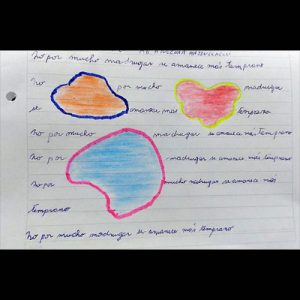 No por mucho madrugar se amanece más temprano
No por mucho madrugar
se amanece más temprano
No por mucho madrugar se amanece más temprano
No por madrugar se amanece más temprano
No por mucho madrugar se amanece más
temprano
No por mucho madrugar se amanece más temprano